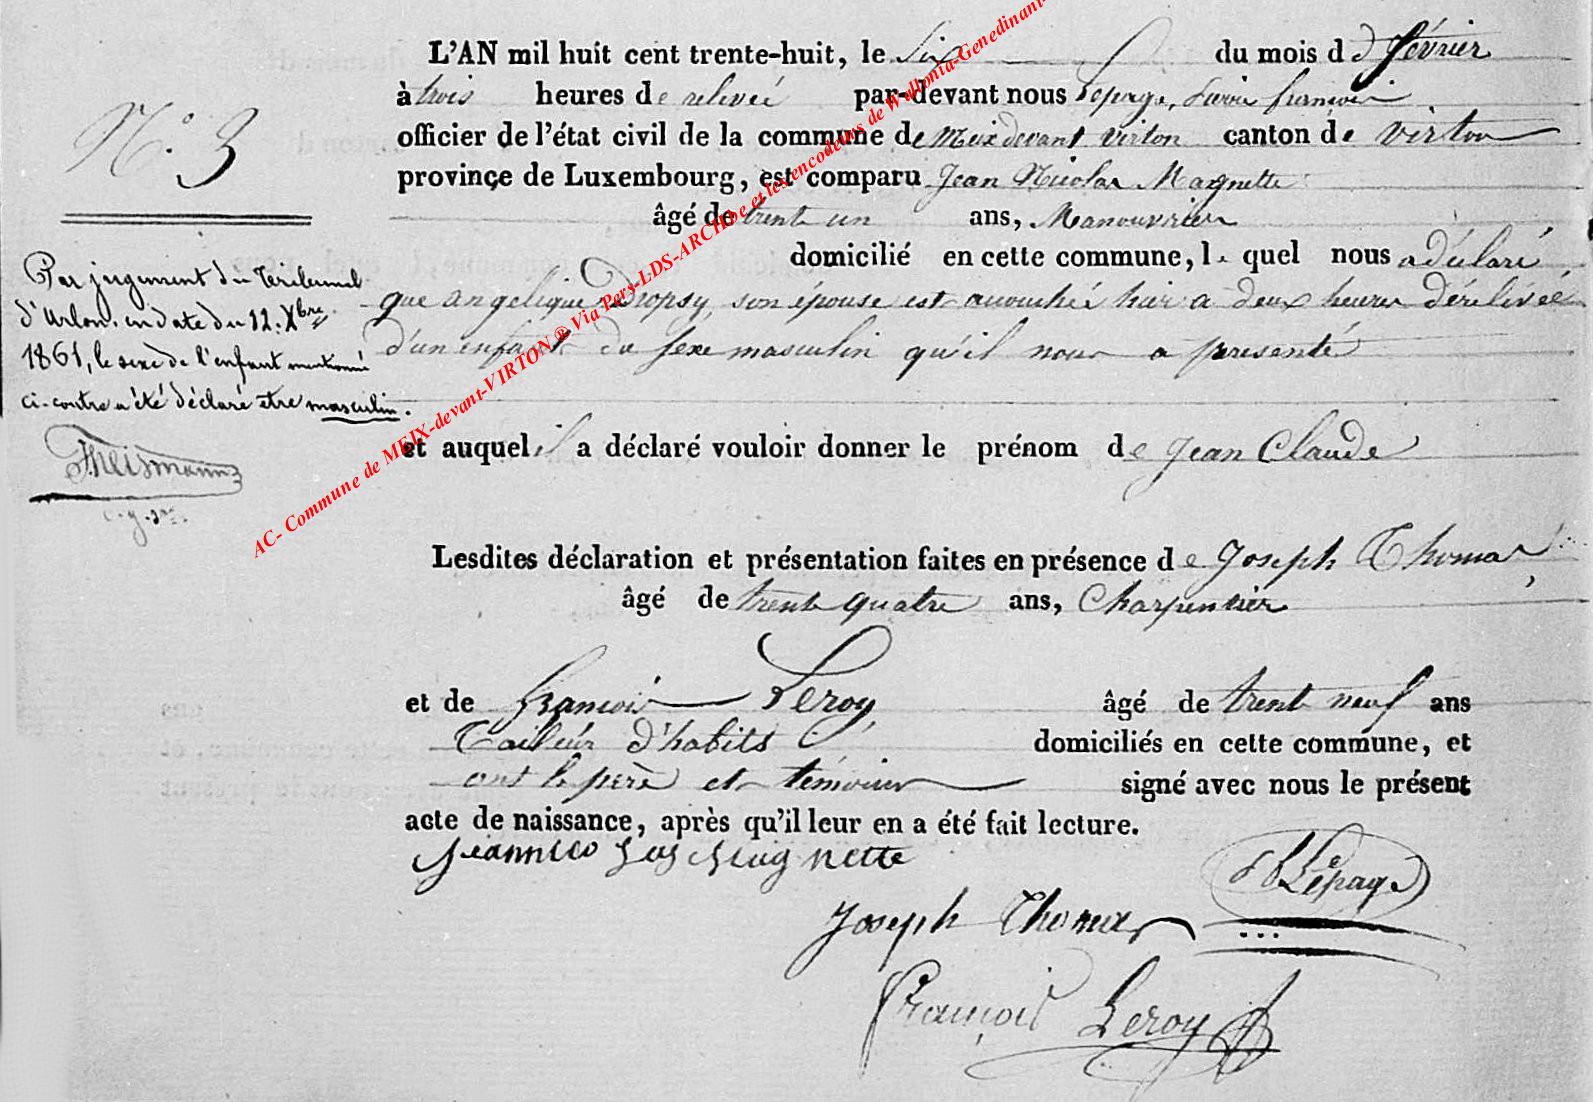 L'AN mil huit cent trente-huit, le Six du mois d d février
à trois heures de relevée par-devant nous Lepage, françois
officier de l'état civil de la commune de Meix devant virton canton de virton
provinçe de Luxembourg, est comparu Jean Nicolas Magnette
âgé de trente un ans, Manouvrier
domicilié en cette commune, le quel nous a déclaré
que angelique Dropsy, son épouse est accouchée hier a deux heures dérélévée
d'un enfant du sexe masculin qu'il nous a presenté
et auquel il a déclaré vouloir donner le prénom de Jean Claude
Lesdites déclaration et présentation faites en présence de Joseph Thomas
âgé de trente quatre ans, Charpentier
et de François Leroy, âgé de trente neuf ans
Tailleur d'habits domiciliés en cette commune, et
ont le père et témoins signé avec nous le présent
acte de naissance, après qu'il leur en a été fait lecture.
Magnette
Lepage
Joseph Thomas
François Leroy
N.° 3
Par jugement du Tribunal
d'Arlon, en date du 12 Xbre
1861, le sexe de l'enfant mentionné
ci-contre a été déclaré etre masculin.
Theismann
AC- Commune de MEIX-devant-VIRTON ® Via Pers-LDS-ARCHbe et les encodeurs de Wallonia-Genedinant